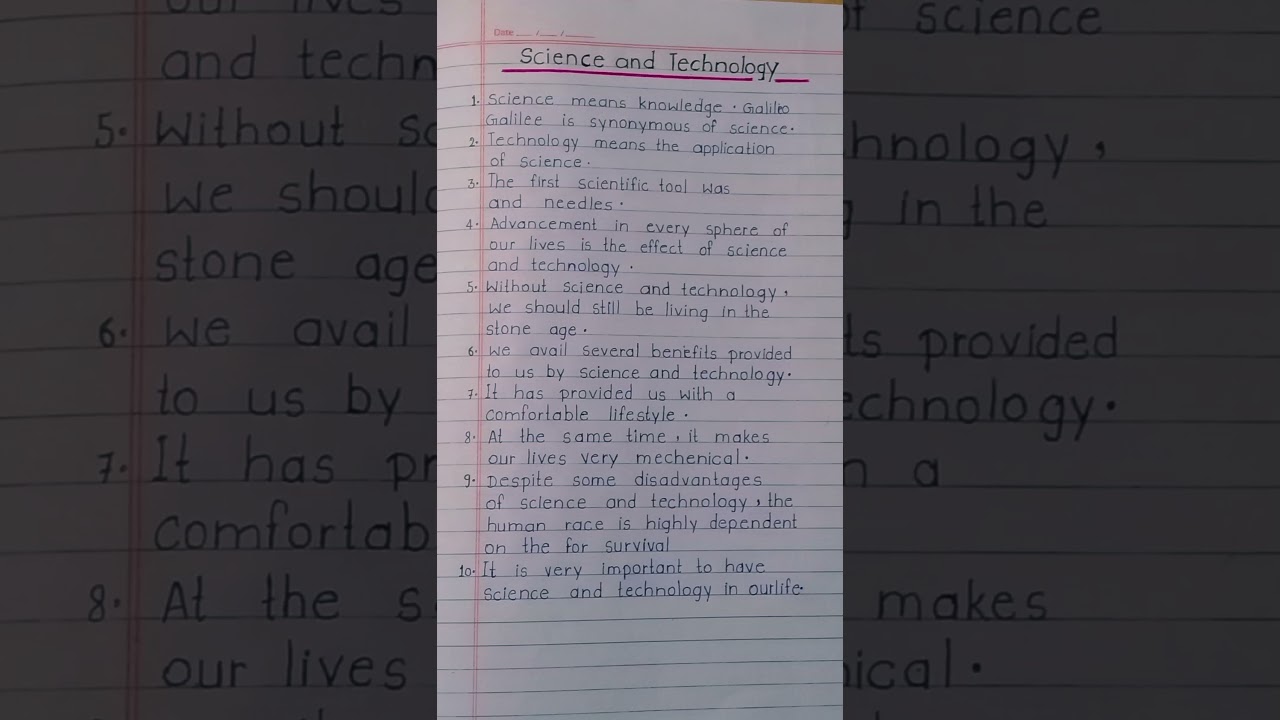 Date ___ /___ /_____
Science and Technology
1. Science means knowledge. Galileo
Galilee is synonymous of science.
2. Technology means the application
of science.
3. The first scientific tool was
and needles.
4. Advancement in every sphere of
our lives is the effect of science
and technology.
5. Without science and technology,
we should still be living in the
stone age.
6. We avail several benefits provided
to us by science and technology.
7. It has provided us with a
comfortable lifestyle.
8. At the same time, it makes
our lives very mechenical.
9. Despite some disadvantages
of science and technology, the
human race is highly dependent
on the for survival
10. It is very important to have
science and technology in ourlife.